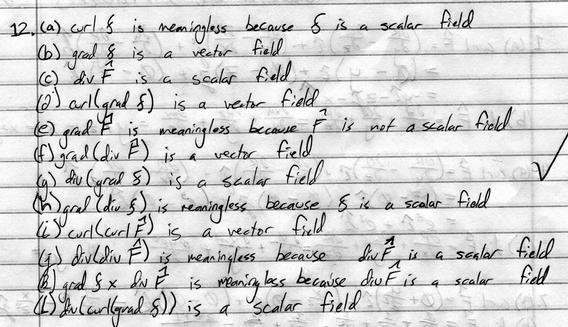 12. (a) curl f is meaningless because f is a scalar field
(b) grad f is a vector field
(c) div F is a scalar field
(d) curl(grad f) is a vector field
(e) grad F is meaningless because F is not a scalar field
(f) grad (div F) is a vector field
(g) div (grad f) is a scalar field
(h) grad (div f) is meaningless because f is a scalar field
(i) curl(curl F) is a vector field
(j) div(div F) is meaningless because div F is a scalar field
(k) grad f x div F is meaningless because div F is a scalar field
(l) div(curl(grad f)) is a scalar field